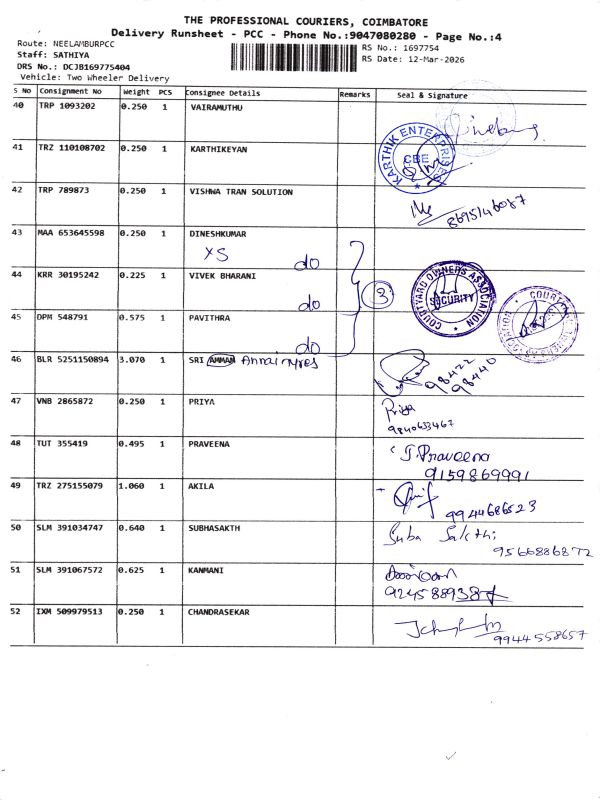 THE PROFESSIONAL COURIERS, COIMBATORE
Delivery Runsheet - PCC - Phone No.:9047080280 - Page No.:4
Route: NEELAMBURPCC
Staff: SATHIYA
DRS No.: DCJB169775404
Vehicle: Two Wheeler Delivery
RS No.: 1697754
RS Date: 12-Mar-2026
S No Consignment No Weight PCS Consignee Details Remarks Seal & Signature
40 TRP 1093202 0.250 1 VAIRAMUTHU
41 TRZ 110108702 0.250 1 KARTHIKEYAN
KARTHIK ENTERPRISES
CBE
42 TRP 789873 0.250 1 VISHWA TRAN SOLUTION
8695146087
43 MAA 653645598 0.250 1 DINESHKUMAR
XS do
44 KRR 30195242 0.225 1 VIVEK BHARANI
do
3
COURTYARD OWNERS ASSOCIATION
SECURITY
45 DPM 548791 0.575 1 PAVITHRA
do
46 BLR 5251150894 3.070 1 SRI AMMAN Annai tyres
98422
98440
47 VNB 2865872 0.250 1 PRIYA
Priya
9840633467
48 TUT 355419 0.495 1 PRAVEENA
J.Praveena
9159869991
49 TRZ 275155079 1.060 1 AKILA
9944686523
50 SLM 391034747 0.640 1 SUBHASAKTH
Suba Sakthi
9566886872
51 SLM 391067572 0.625 1 KANMANI
9245889387
52 IXM 509979513 0.250 1 CHANDRASEKAR
9944558657